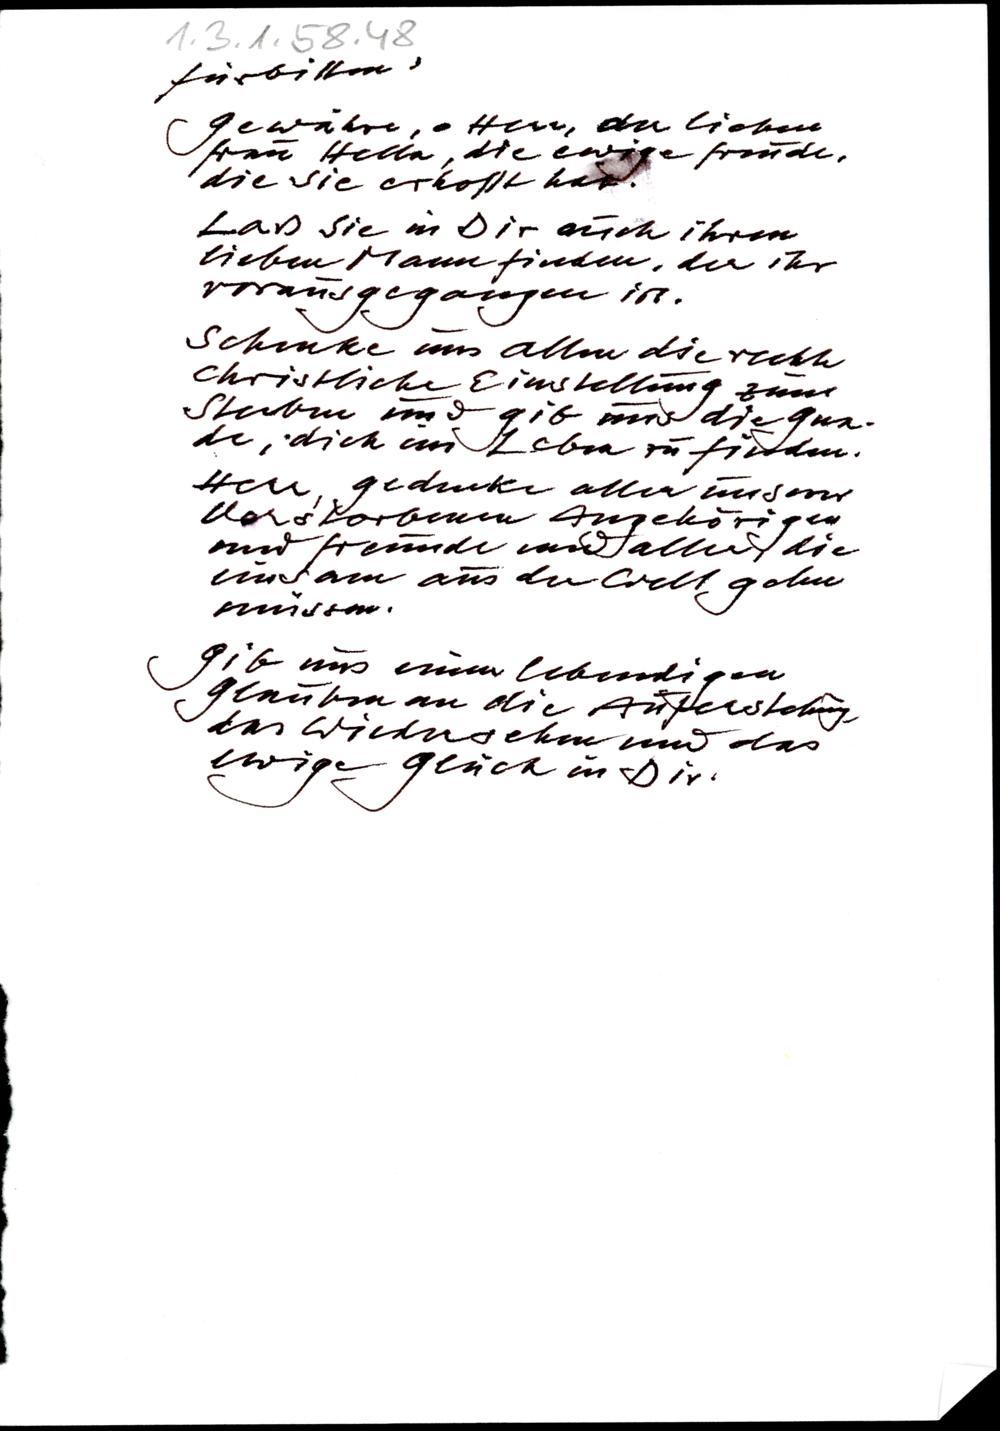 1.3.1.58.48
Fürbitten:
Gewähre, o Herr, der lieben
Frau Hella, die ewige Freude,
die sie erhofft hat.
Laß sie in Dir auch ihren
lieben Mann finden, der ihr
vorausgegangen ist.
Schenke uns allen die rechte
christliche Einstellung zum
Sterben und gib uns die Gna-
de, dich im Leben zu finden.
Herr, gedenke aller unserer
Verstorbenen Angehörigen
und Freunde und aller, die
einsam aus der Welt gehen
müssen.
Gib uns einen lebendigen
Glauben an die Auferstehung
das Wiedersehen und das
ewige Glück in Dir.